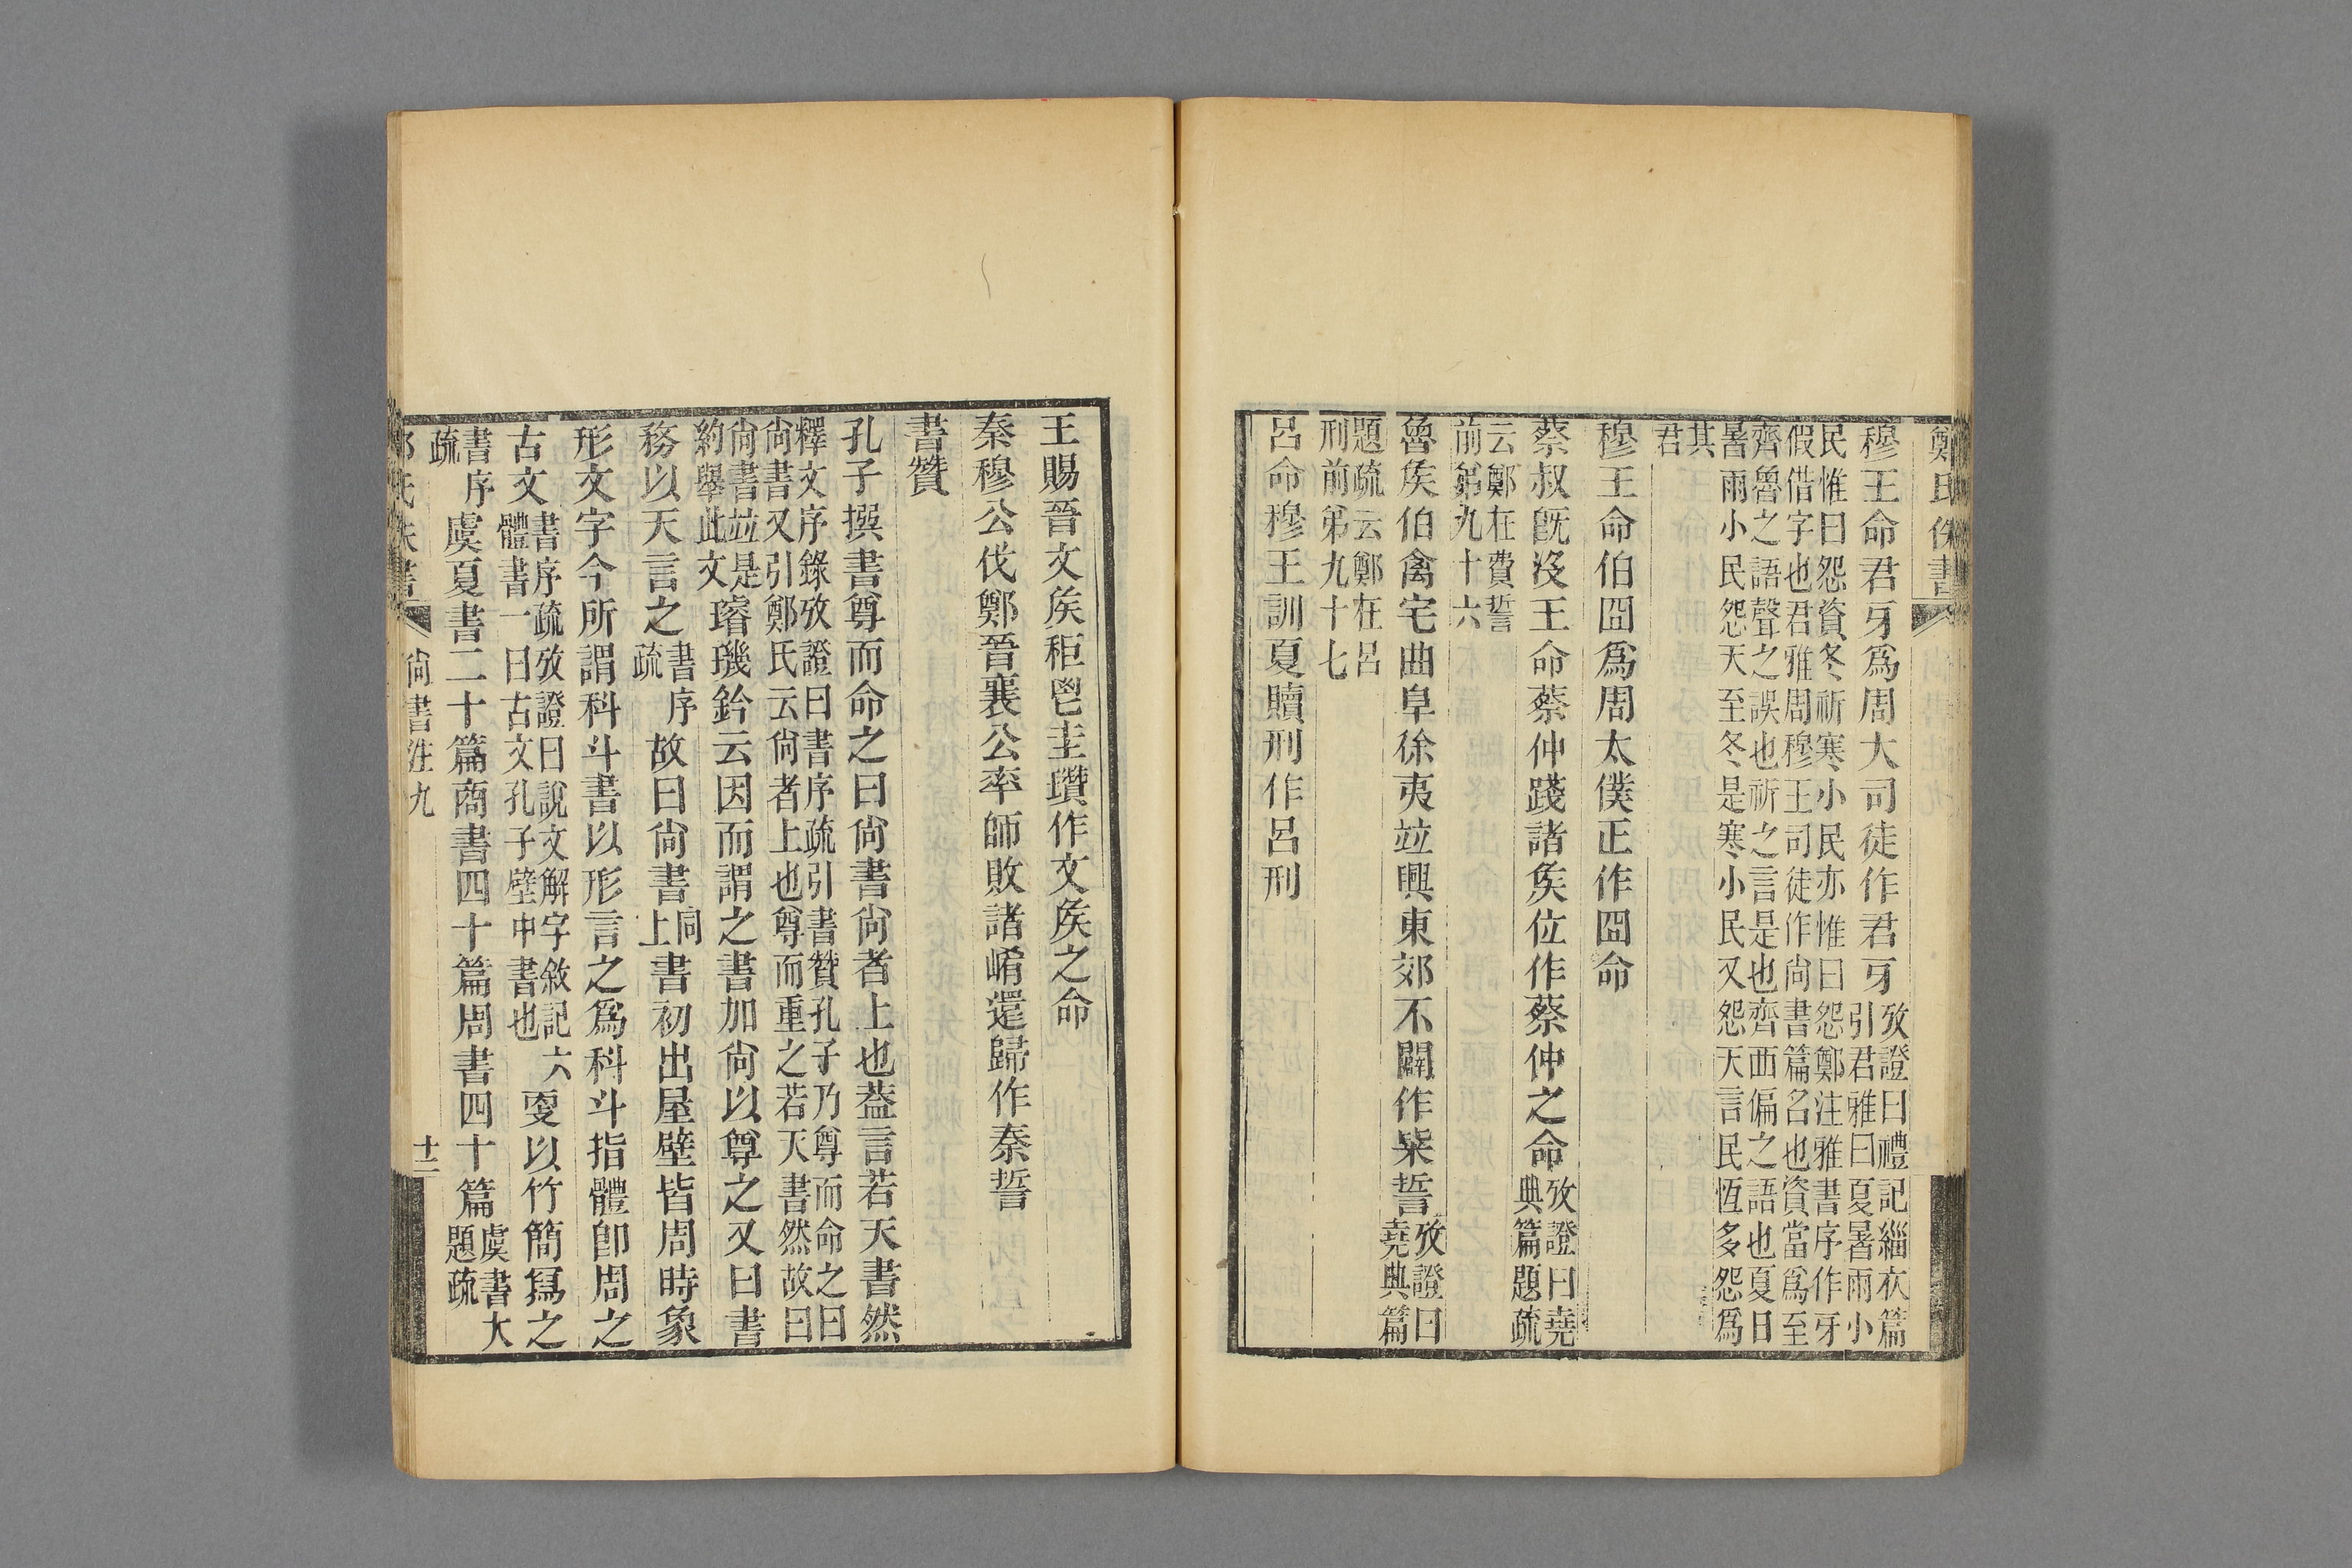 鄭氏佚書
穆王命君牙爲周大司徒作君牙
攷證曰禮記緇衣篇
引君雅曰夏暑雨小
民惟曰怨資冬祈寒小民亦惟曰怨鄭注雅書序作牙
假借字也君雅周穆王司徒作尙書篇名也資當爲至
齊魯之語聲之誤也祈之言是也齊西偏之語也夏日
暑雨小民怨天至冬是寒小民又怨天言民恆多怨爲
其
君
穆王命伯冏爲周太僕正作冏命
蔡叔旣沒王命蔡仲踐諸矦位作蔡仲之命
攷證曰堯
典篇題疏
云鄭在費誓
前第九十六
魯矦伯禽宅曲阜徐夷竝興東郊不闢作粊誓
攷證曰
堯典篇
題疏云鄭在呂
刑前弟九十七
呂命穆王訓夏贖刑作呂刑
王賜晉文矦秬鬯圭瓚作文矦之命
秦穆公伐鄭晉襄公率師敗諸崤還歸作秦誓
書贊
孔子撰書尊而命之曰尙書尙者上也葢言若天書然
釋文序錄攷證曰書序疏引書贊孔子乃尊而命之曰
尙書又引鄭氏云尙者上也尊而重之若天書然故曰
尙書竝是
約舉此文
璿璣鈐云因而謂之書加尙以尊之又曰書
務以天言之
書序
疏
故曰尙書
同
上
書初出屋壁皆周時象
形文字今所謂科斗書以形言之爲科斗指體卽周之
古文
書序疏攷證曰說文解字敘記六
體書一曰古文孔子壁中書也
㪅以竹簡寫之
書序
疏
虞夏書二十篇商書四十篇周書四十篇
虞書大
題疏
尙書注九
十二